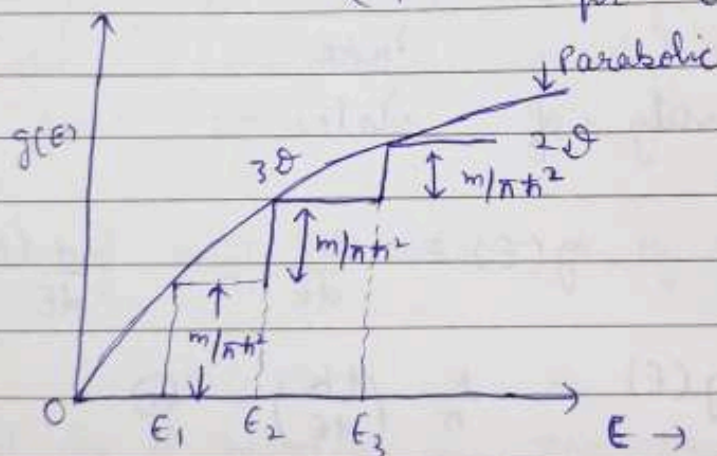 per
Parabolic
g(E)
3D
2D
m/πħ²
m/πħ²
m/πħ²
0
E₁ E₂ E₃
E →